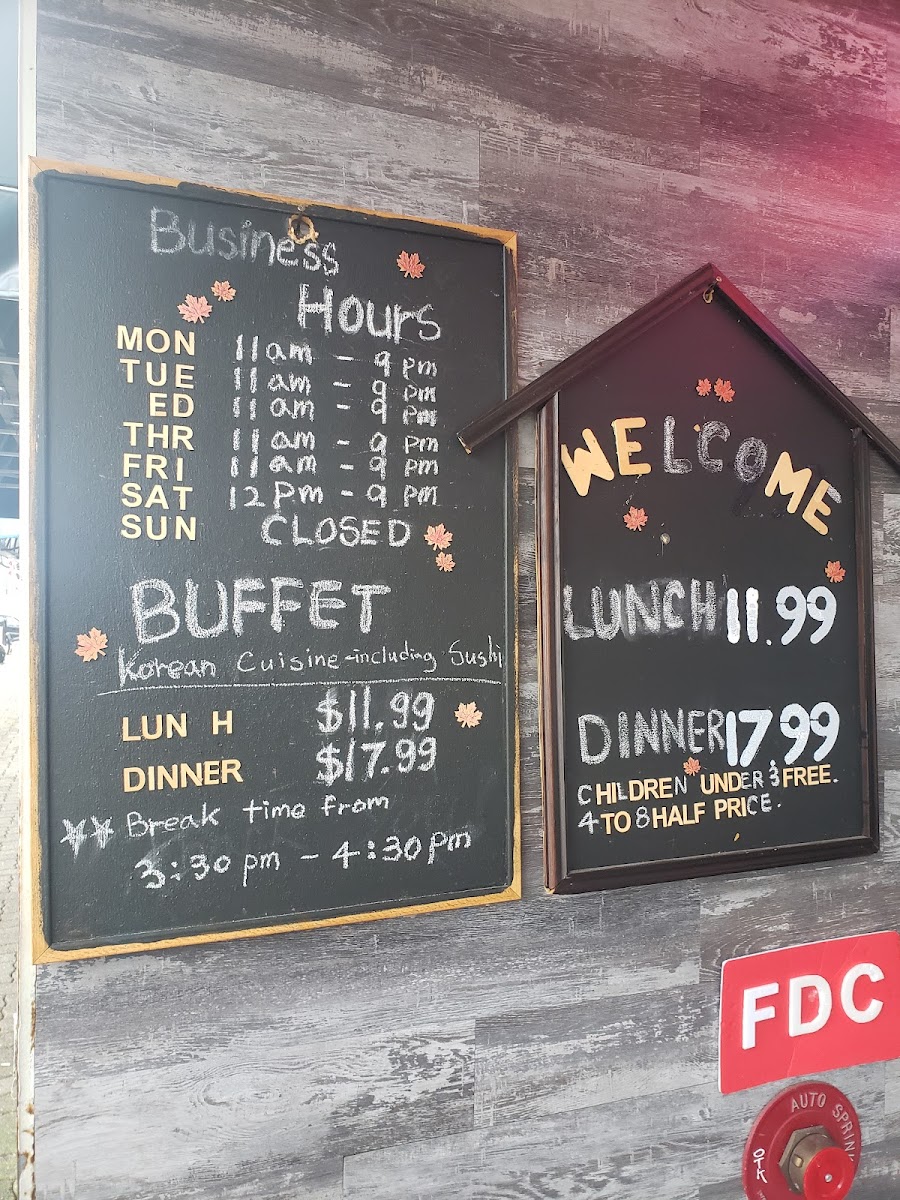 Business
Hours
MON 11am - 9pm
TUE 11am - 9pm
ED 11am - 9pm
THR 11am - 9pm
FRI 11am - 9pm
SAT 12pm - 9pm
SUN CLOSED
BUFFET
Korean Cuisine-including Sushi
LUN H $11.99
DINNER $17.99
Break time from
3:30pm - 4:30pm
WELCOME
LUNCH 11.99
DINNER 17.99
CHILDREN UNDER 3 FREE.
4 TO 8 HALF PRICE.
FDC
AUTO SPRIN